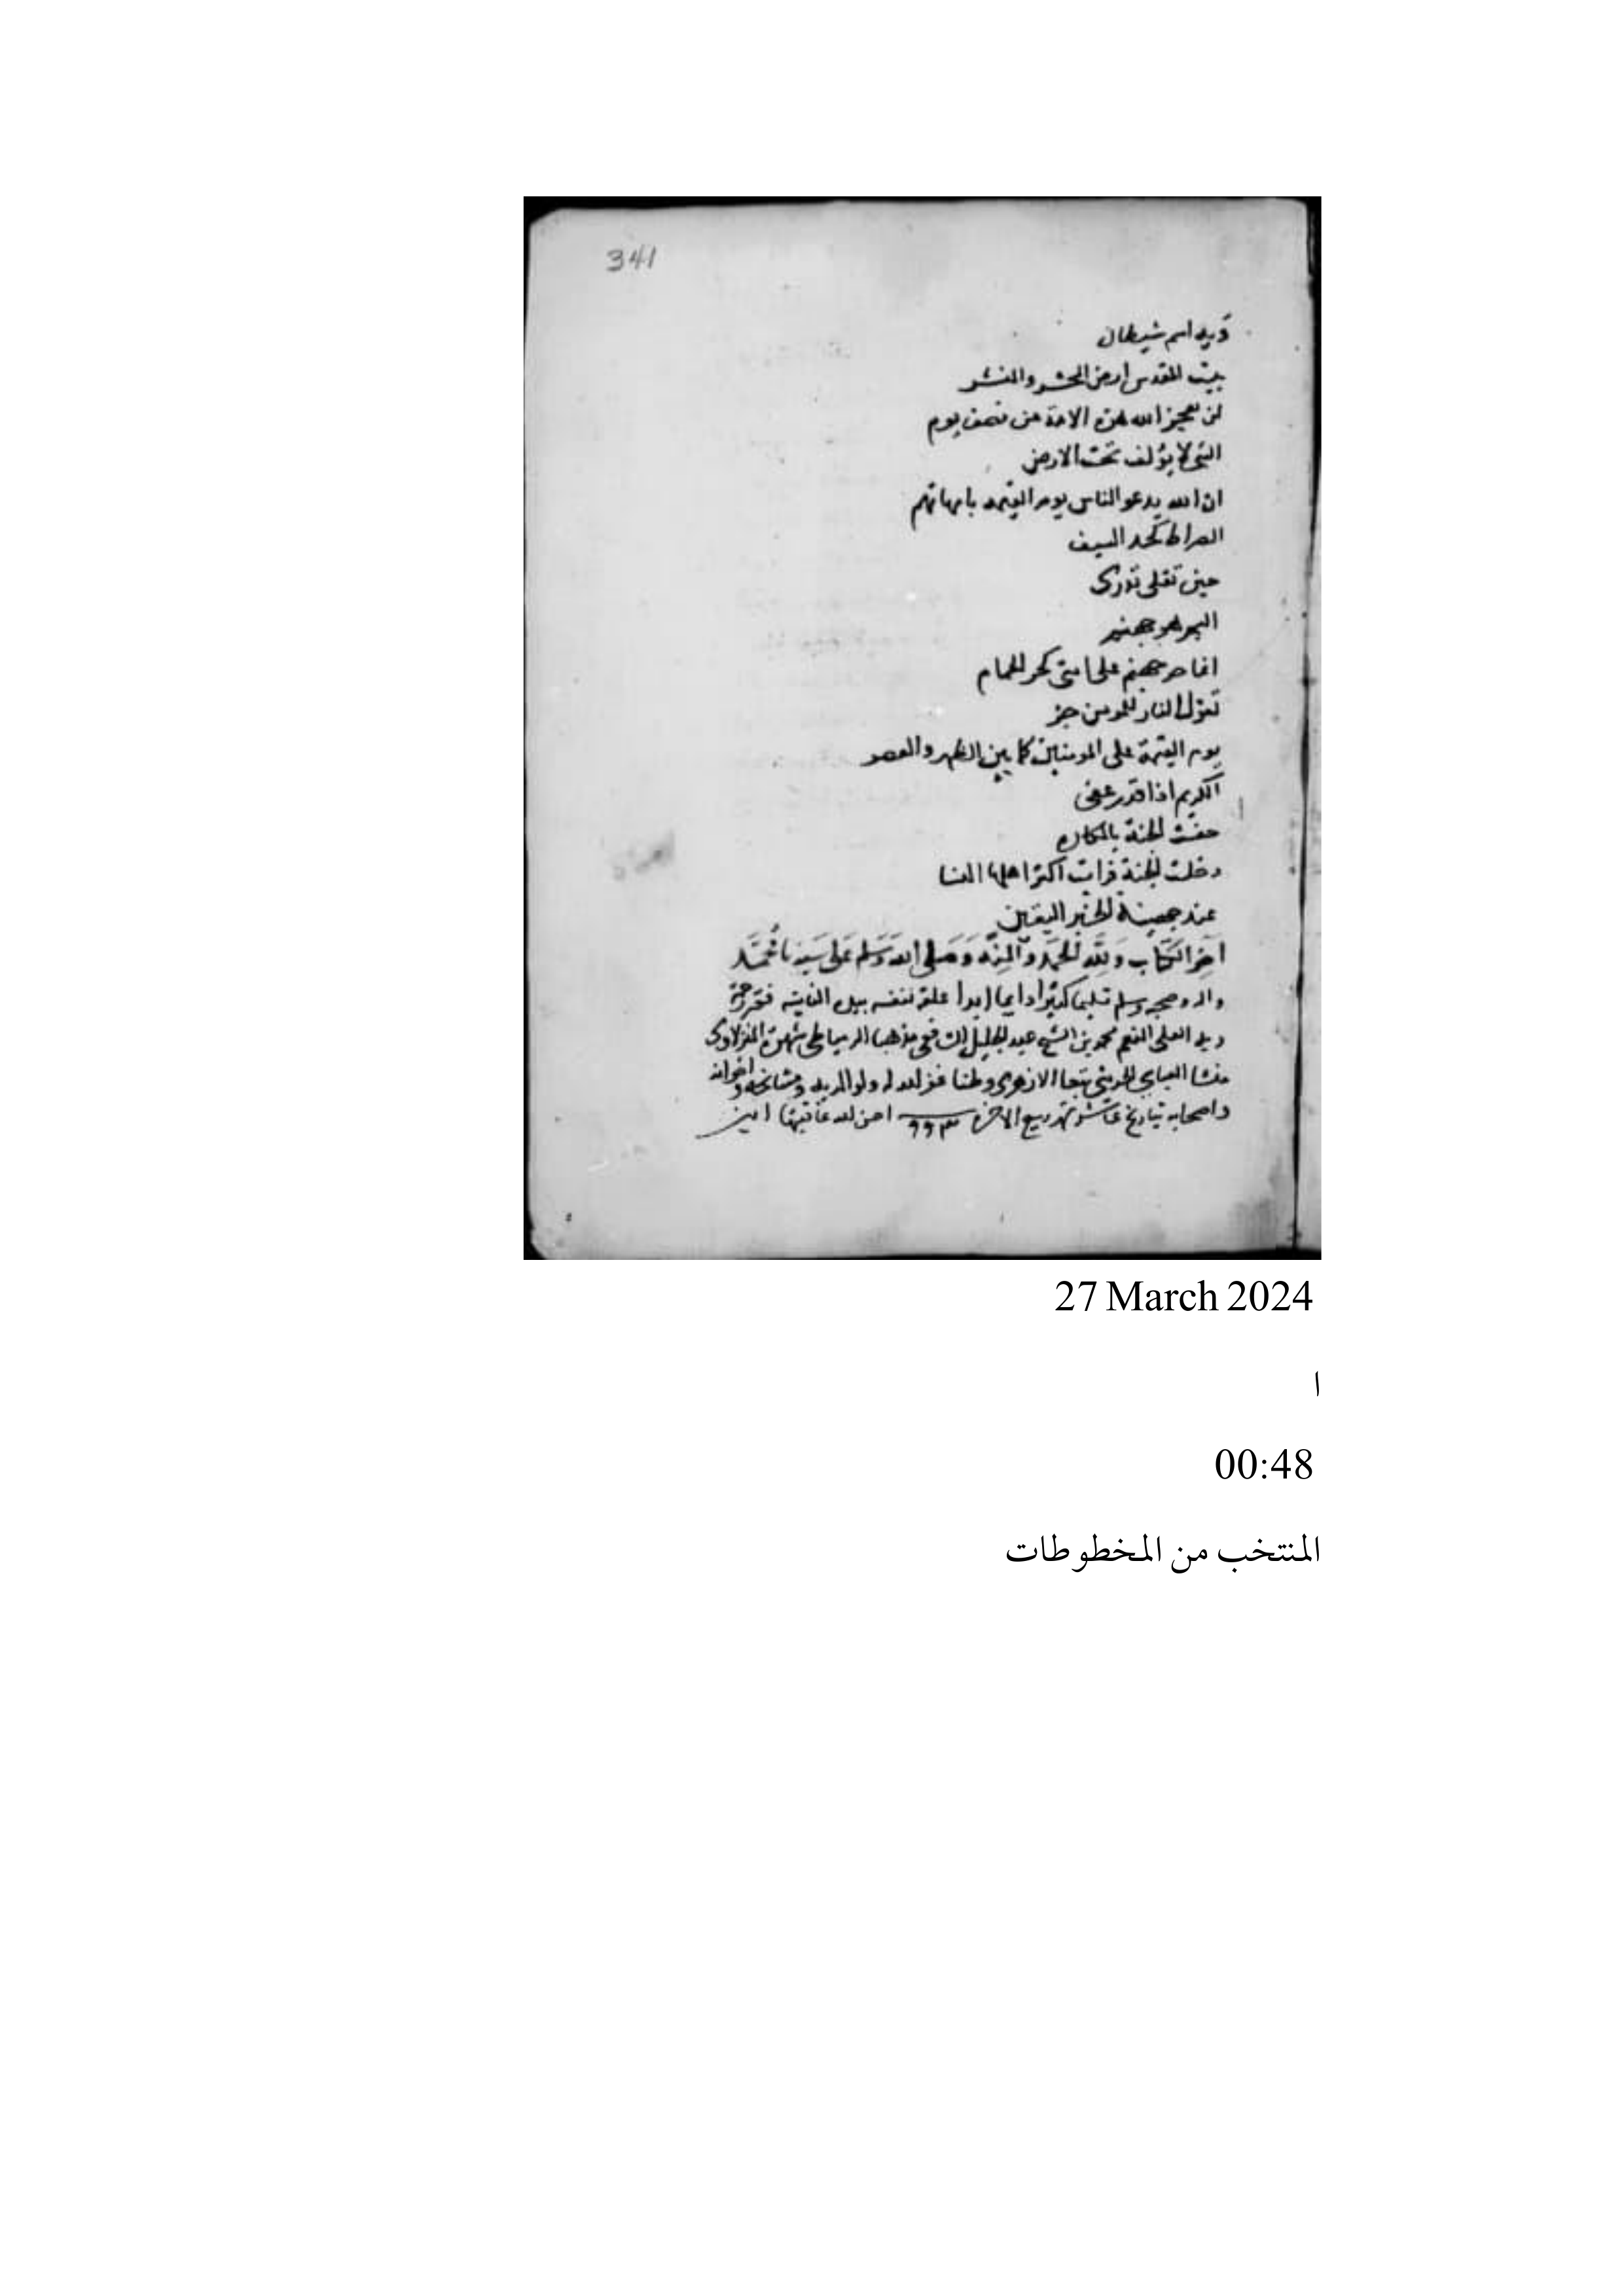 341
ويه اسم شيطان
بيت المقدس ارض المحشر والمنشر
لن يعجز الله هذه الامة من نصف يوم
النبي لا يؤلف تحت الارض
ان الله يدعو الناس يوم القيمة بامهاتهم
الصراط كحد السيف
حين تقلى تدرى
البحر هو جهنم
انما حر جهنم على امتى كحر الحمام
تقول النار للمومن جز
يوم القيمة على المومنين كما بين الظهر والعصر
الكريم اذا قدر عفى
حفت الجنة بالمكاره
دخلت الجنة فرايت اكثر اهلها النسا
عند جهينة الخبر اليقين
اخر الكتاب ولله الحمد والمنه وصلى الله وسلم على سيدنا محمد
واله وصحبه وسلم تسليما كثيرا دايما ابدا علقه لنفسه بيده الفانيه فقير رحمة
ربه العلى محمد بن الشيخ عبد الجليل الشافعى مذهبا الدمياطى شهرة المنزلاوى
منشا العباسى تبعا الازهرى وطنا غفر الله له ولوالديه ومشايخه واخوانه
واصحابه بتاريخ عاشر شهر ربيع الاخر ٩٩٣ احسن الله عاقبتها امين
27 March 2024
ا
00:48
المنتخب من المخطوطات